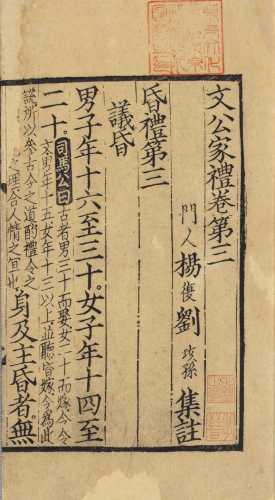 文公家禮卷第三
門人楊復劉垓孫集註
昏禮第三
議昏
男子年十六至三十。女子年十四至
二十。司馬公曰古者男三十而娶女二十而嫁今令
文男年十五女年十三以上並聽昏嫁今為此
說所以參古今之道酌禮令之
中順天地之理合人情之宜也身及主昏者無